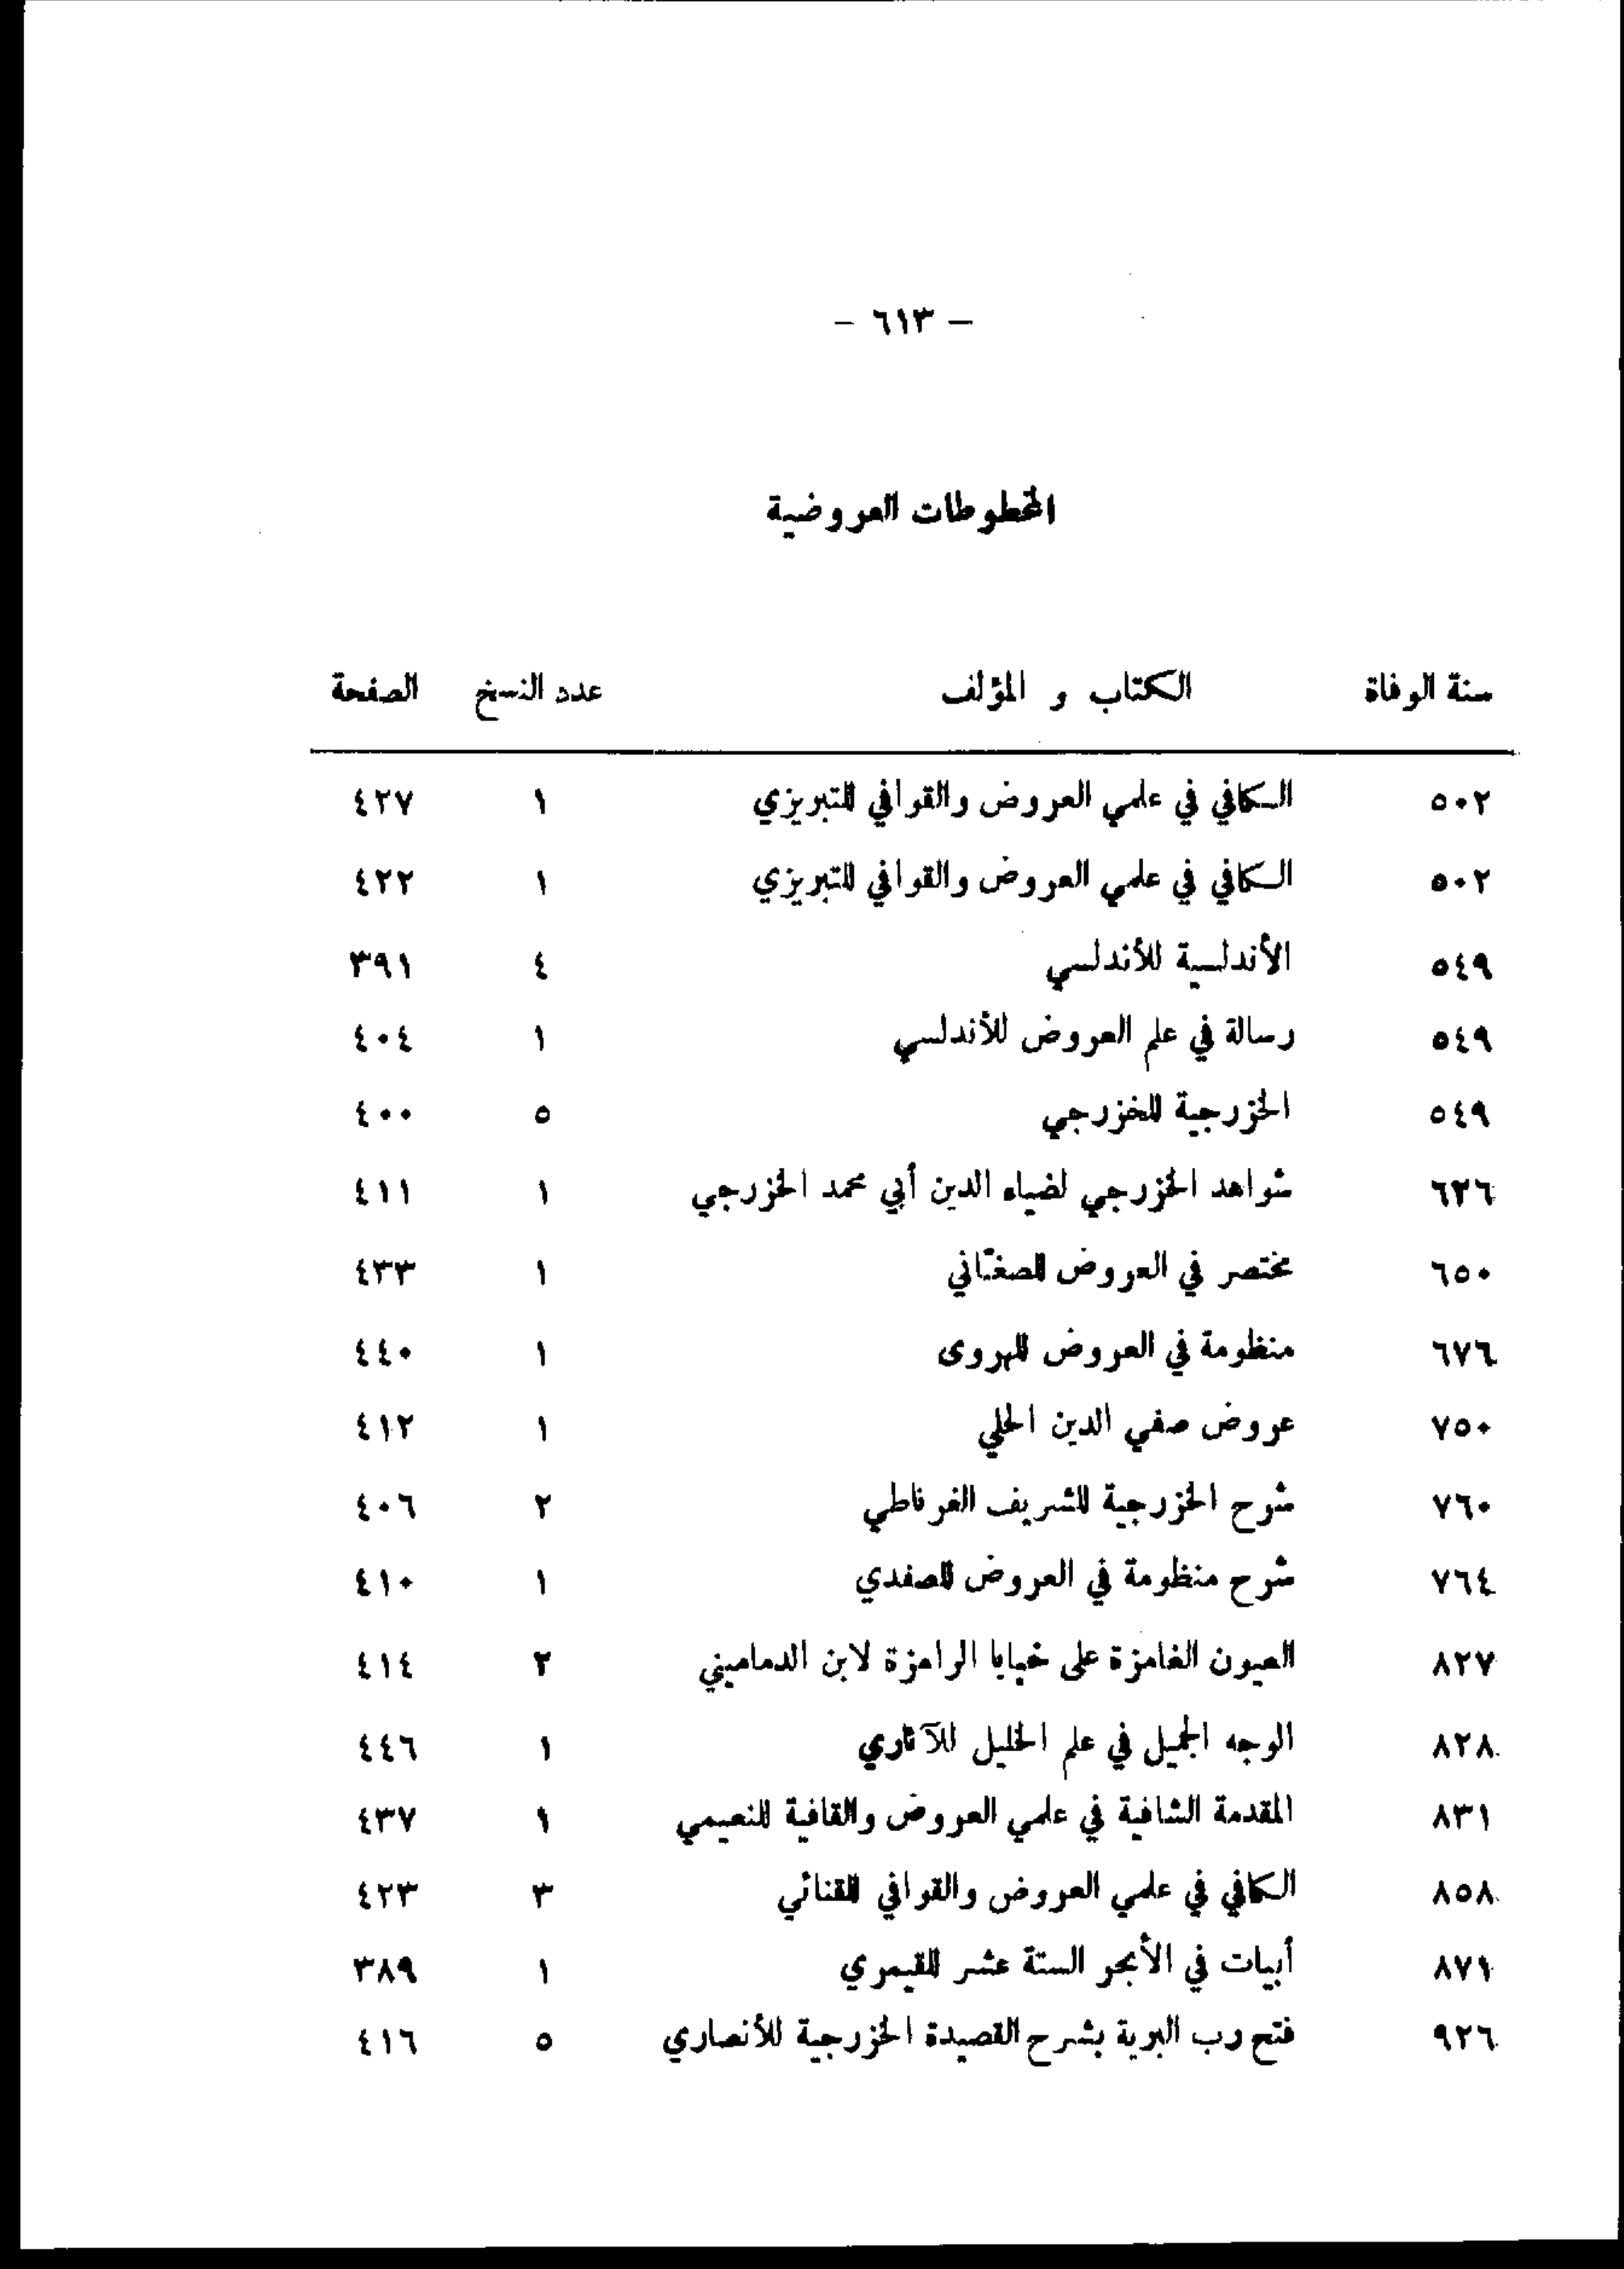 - ٦١٣ -
المخطوطات العروضية
سنة الوفاة الكتاب و المؤلف عدد النسخ الصفحة
٥٠٢ الكافي في علمي العروض والقوافي للتبريزي ١ ٤٢٧
٥٠٢ الكافي في علمي العروض والقوافي للتبريزي ١ ٤٢٢
٥٤٩ الأندلسية للأندلسي ٤ ٣٩١
٥٤٩ رسالة في علم العروض للأندلسي ١ ٤٠٤
٥٤٩ الخزرجية للخزرجي ٥ ٤٠٠
٦٢٦ شواهد الخزرجي لضياء الدين أبي محمد الخزرجي ١ ٤١١
٦٥٠ مختصر في العروض للصغاني ١ ٤٣٣
٦٧٦ منظومة في العروض للهروى ١ ٤٤٠
٧٥٠ عروض صفي الدين الحلي ١ ٤١٢
٧٦٠ شرح الخزرجية للشريف الغرناطي ٢ ٤٠٦
٧٦٤ شرح منظومة في العروض للصفدي ١ ٤١٠
٨٢٧ العيون الغامزة على خبايا الرامزة لابن الدماميني ٢ ٤١٤
٨٢٨ الوجه الجميل في علم الخليل للآثاري ١ ٤٤٦
٨٣١ المقدمة الشافية في علمي العروض والقافية للنعيمي ١ ٤٣٧
٨٥٨ الكافي في علمي العروض والقوافي للقنائي ٣ ٤٢٣
٨٧١ أبيات في الأبحر الستة عشر للقيمري ١ ٣٨٩
٩٢٦ فتح رب البرية بشرح القصيدة الخزرجية للأنصاري ٥ ٤١٦